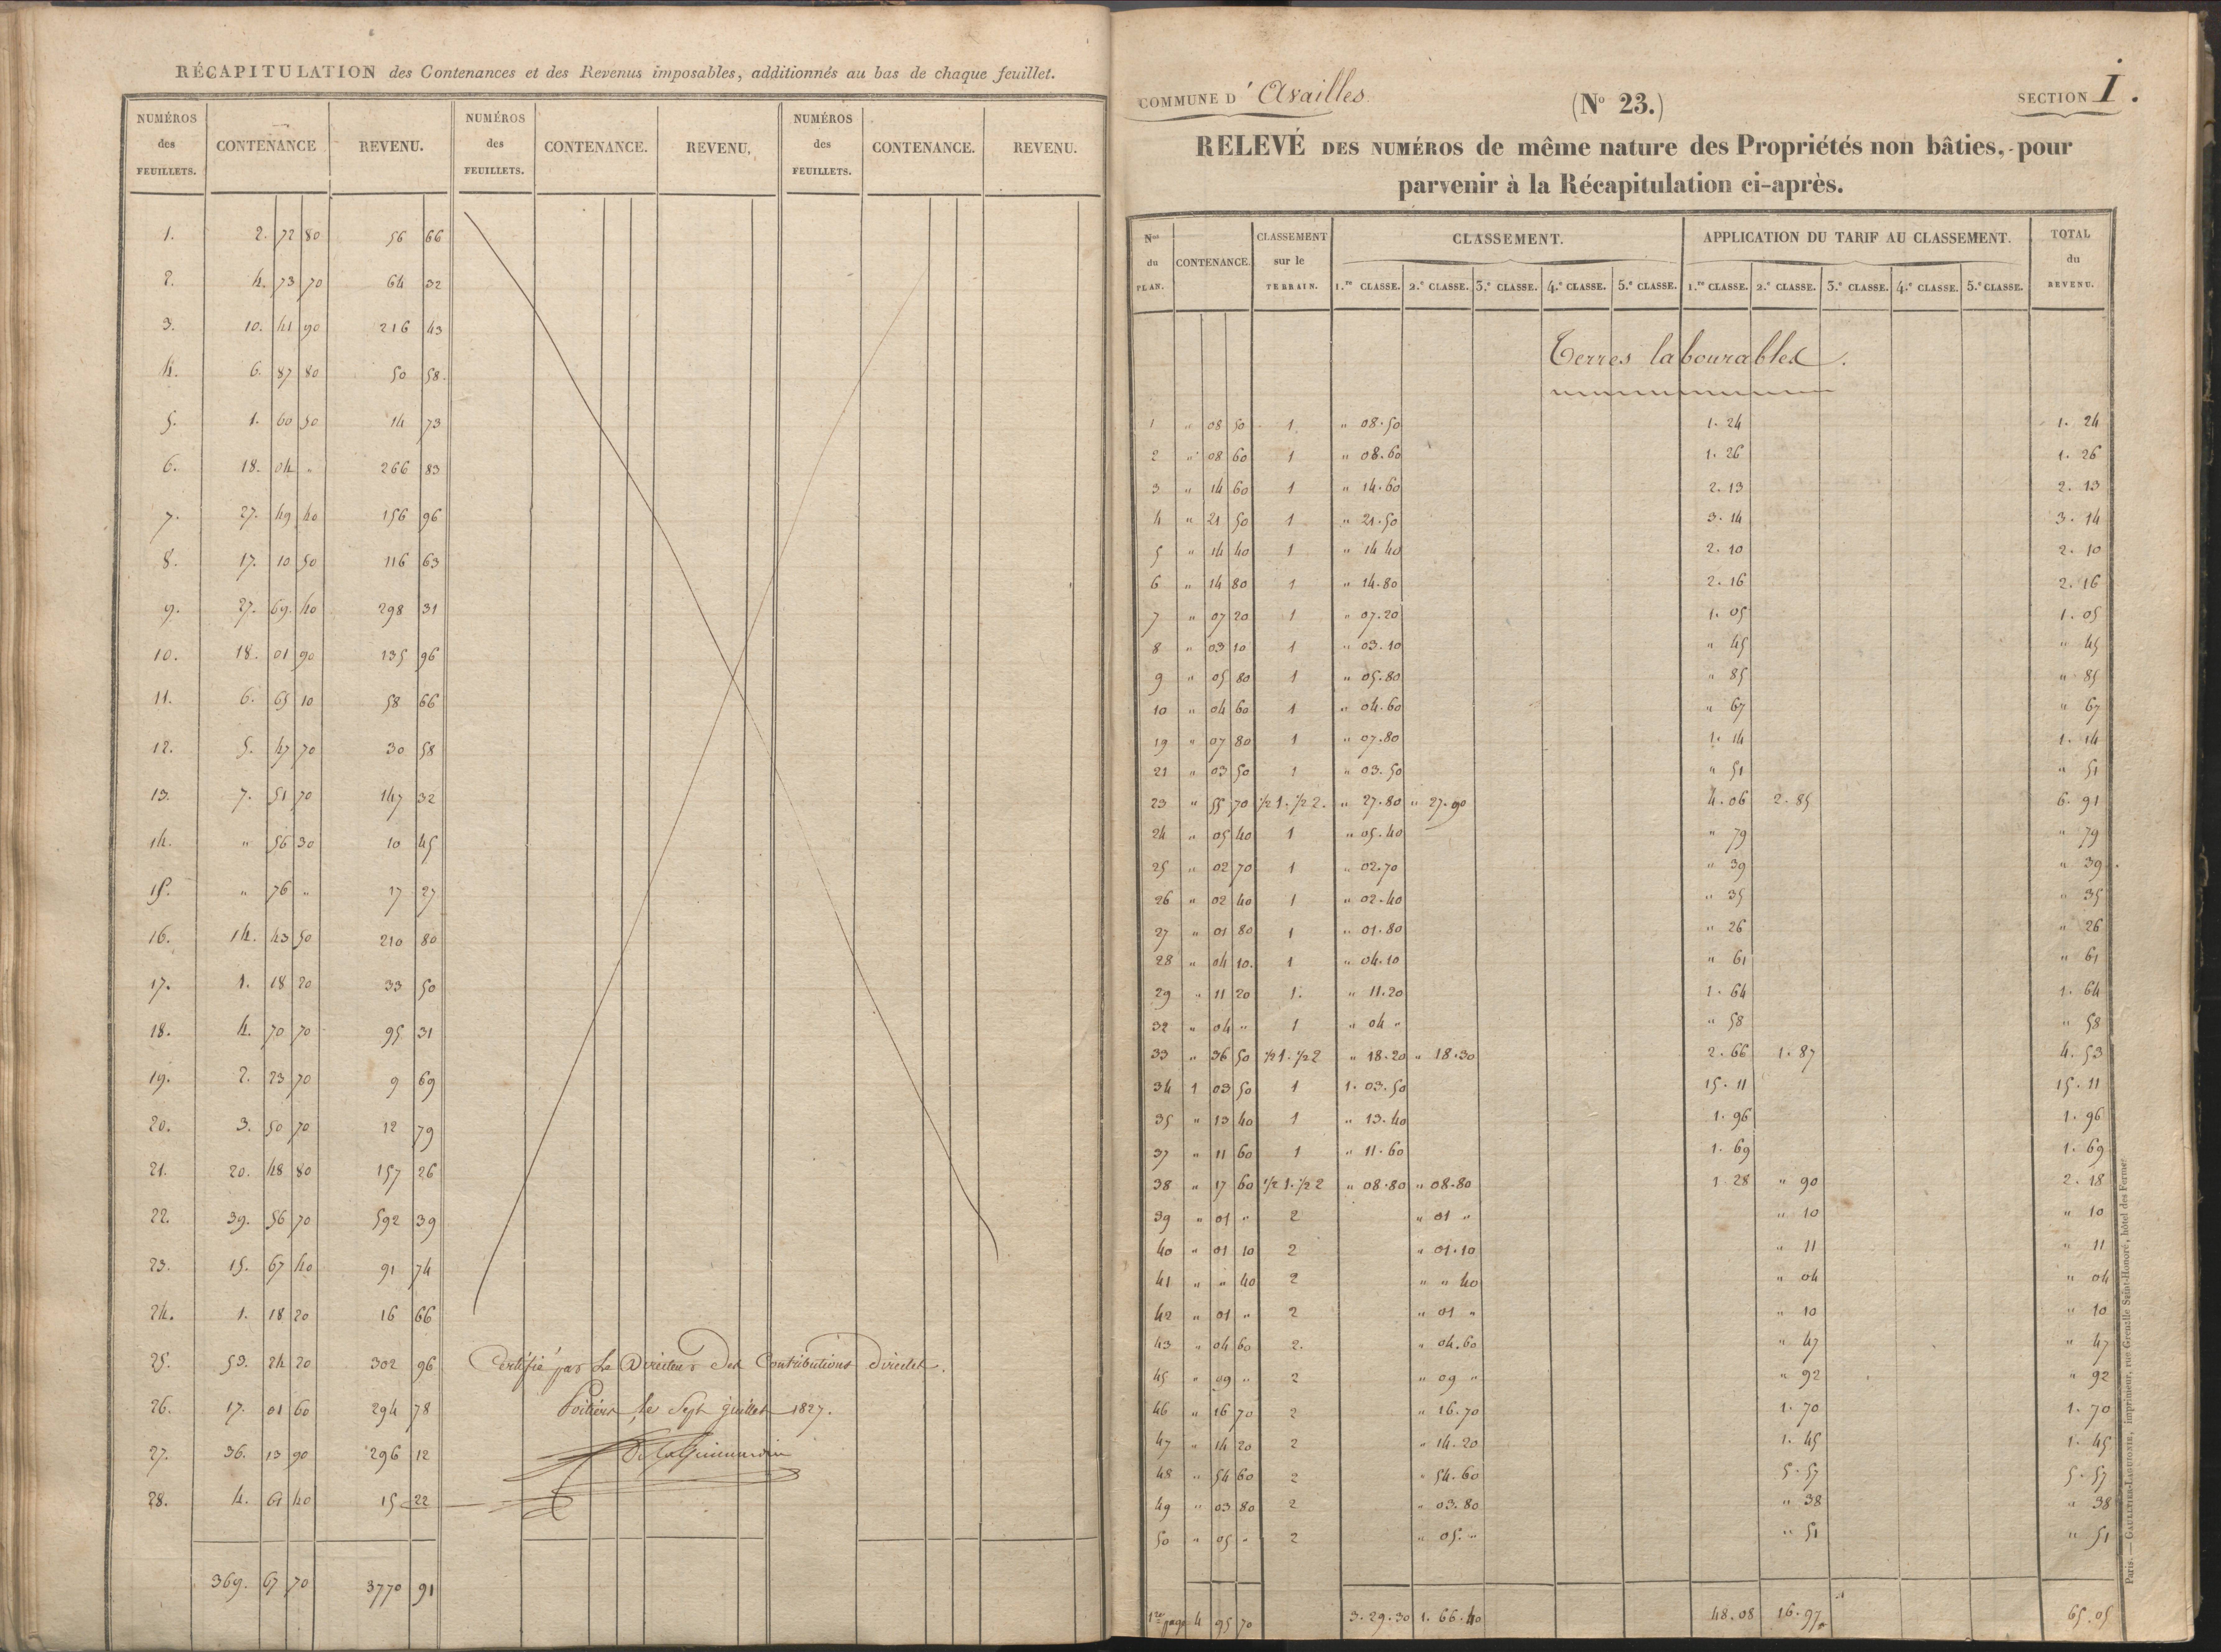 RÉCAPITULATION des Contenances et des Revenus imposables, additionnés au bas de chaque feuillet.
NUMÉROS des FEUILLETS. CONTENANCE REVENU. NUMÉROS des FEUILLETS. CONTENANCE. REVENU. NUMÉROS des FEUILLETS. CONTENANCE. REVENU.
1. 2. 72 80 56 66
2. 4. 73 70 64 32
3. 10. 41 90 216 43
4. 6. 87 80 50 58.
5. 1. 60 50 14 73
6. 18. 04 " 266 83
7. 27. 49 40 156 96
8. 17. 10 50 116 63
9. 27. 69. 40 298 31
10. 18. 01 90 135 96
11. 6. 65 10 58 66
12. 5. 47 70 30 58
13. 7. 51 70 147 32
14. " 56 30 10 45
15. " 76 " 17 27
16. 14. 43 50 210 80
17. 1. 18 20 33 50
18. 4. 70 70 95 31
19. 2. 23 70 9 69
20. 3. 50 70 12 79
21. 20. 48 80 157 26
22. 39. 56 70 592 39
23. 15. 67 40 91 74
24. 1. 18 20 16 66
25. 53. 24 20 302 96
26. 17. 01 60 294 78
27. 36. 13 90 296 12
28. 4. 61 40 15 22
369. 67 70 3770 91
Certifié par Le Directeur des Contributions directes.
Poitiers, les Sept juillet 1827.
COMMUNE D' Availles
(No 23.)
SECTION I.
RELEVÉ DES NUMÉROS de même nature des Propriétés non bâties, pour
parvenir à la Récapitulation ci-après.
Nos du PLAN. CONTENANCE. CLASSEMENT sur le TERRAIN. CLASSEMENT. APPLICATION DU TARIF AU CLASSEMENT. TOTAL du REVENU.
1.re CLASSE. 2.e CLASSE. 3.e CLASSE. 4.e CLASSE. 5.e CLASSE. 1.re CLASSE. 2.e CLASSE. 3.e CLASSE. 4.e CLASSE. 5.e CLASSE.
Terres labourables.
1 " 08 50 1 " 08.50 1. 24 1. 24
2 " 08 60 1 " 08.60 1. 26 1. 26
3 " 14 60 1 " 14.60 2. 13 2. 13
4 " 21 50 1 " 21.50 3. 14 3. 14
5 " 14 40 1 " 14 40 2. 10 2. 10
6 " 14 80 1 " 14.80 2. 16 2. 16
7 " 07 20 1 " 07.20 1. 05 1. 05
8 " 03 10 1 " 03.10 " 45 " 45
9 " 05 80 1 " 05.80 " 85 " 85
10 " 04 60 1 " 04.60 " 67 " 67
19 " 07 80 1 " 07.80 1. 14 1. 14
21 " 03 50 1 " 03.50 " 51 " 51
23 " 55 70 1/2 1. 1/2 2. " 27.80 " 27.90 4.06 2.85 6. 91
24 " 05 40 1 " 05.40 " 79 " 79
25 " 02 70 1 " 02.70 " 39 " 39
26 " 02 40 1 " 02.40 " 35 " 35
27 " 01 80 1 " 01.80 " 26 " 26
28 " 04 10. 1 " 04.10 " 61 " 61
29 " 11 20 1. " 11.20 1. 64 1. 64
32 " 04 " 1 " 04 " " 58 " 58
33 " 36 50 1/2 1. 1/2 2 " 18.20 " 18.30 2. 66 1. 87 4. 53
34 1 03 50 1 1. 03.50 15. 11 15. 11
35 " 13 40 1 " 13.40 1. 96 1. 96
37 " 11 60 1 " 11.60 1. 69 1. 69
38 " 17 60 1/2 1. 1/2 2 " 08.80 " 08.80 1 28 " 90 2. 18
39 " 01 " 2 " 01 " " 10 " 10
40 " 01 10 2 " 01.10 " 11 " 11
41 " " 40 2 " " 40 " 04 " 04
42 " 01 " 2 " 01 " " 10 " 10
43 " 04 60 2. " 04.60 " 47 " 47
45 " 09 " 2 " 09 " " 92 " 92
46 " 16 70 2 " 16.70 1. 70 1. 70
47 " 14 20 2 " 14.20 1. 45 1. 45
48 " 54 60 2 " 54.60 5.57 5.57
49 " 03 80 2 " 03.80 " 38 " 38
50 " 05 " 2 " 05. " " 51 " 51
1re page 4 95 70 3.29.30 1. 66.40 48.08 16.97 65.05
Paris. — GAULTIER-LAGUIONIE, imprimeur, rue Grenelle Saint-Honoré, hôtel des Fermes